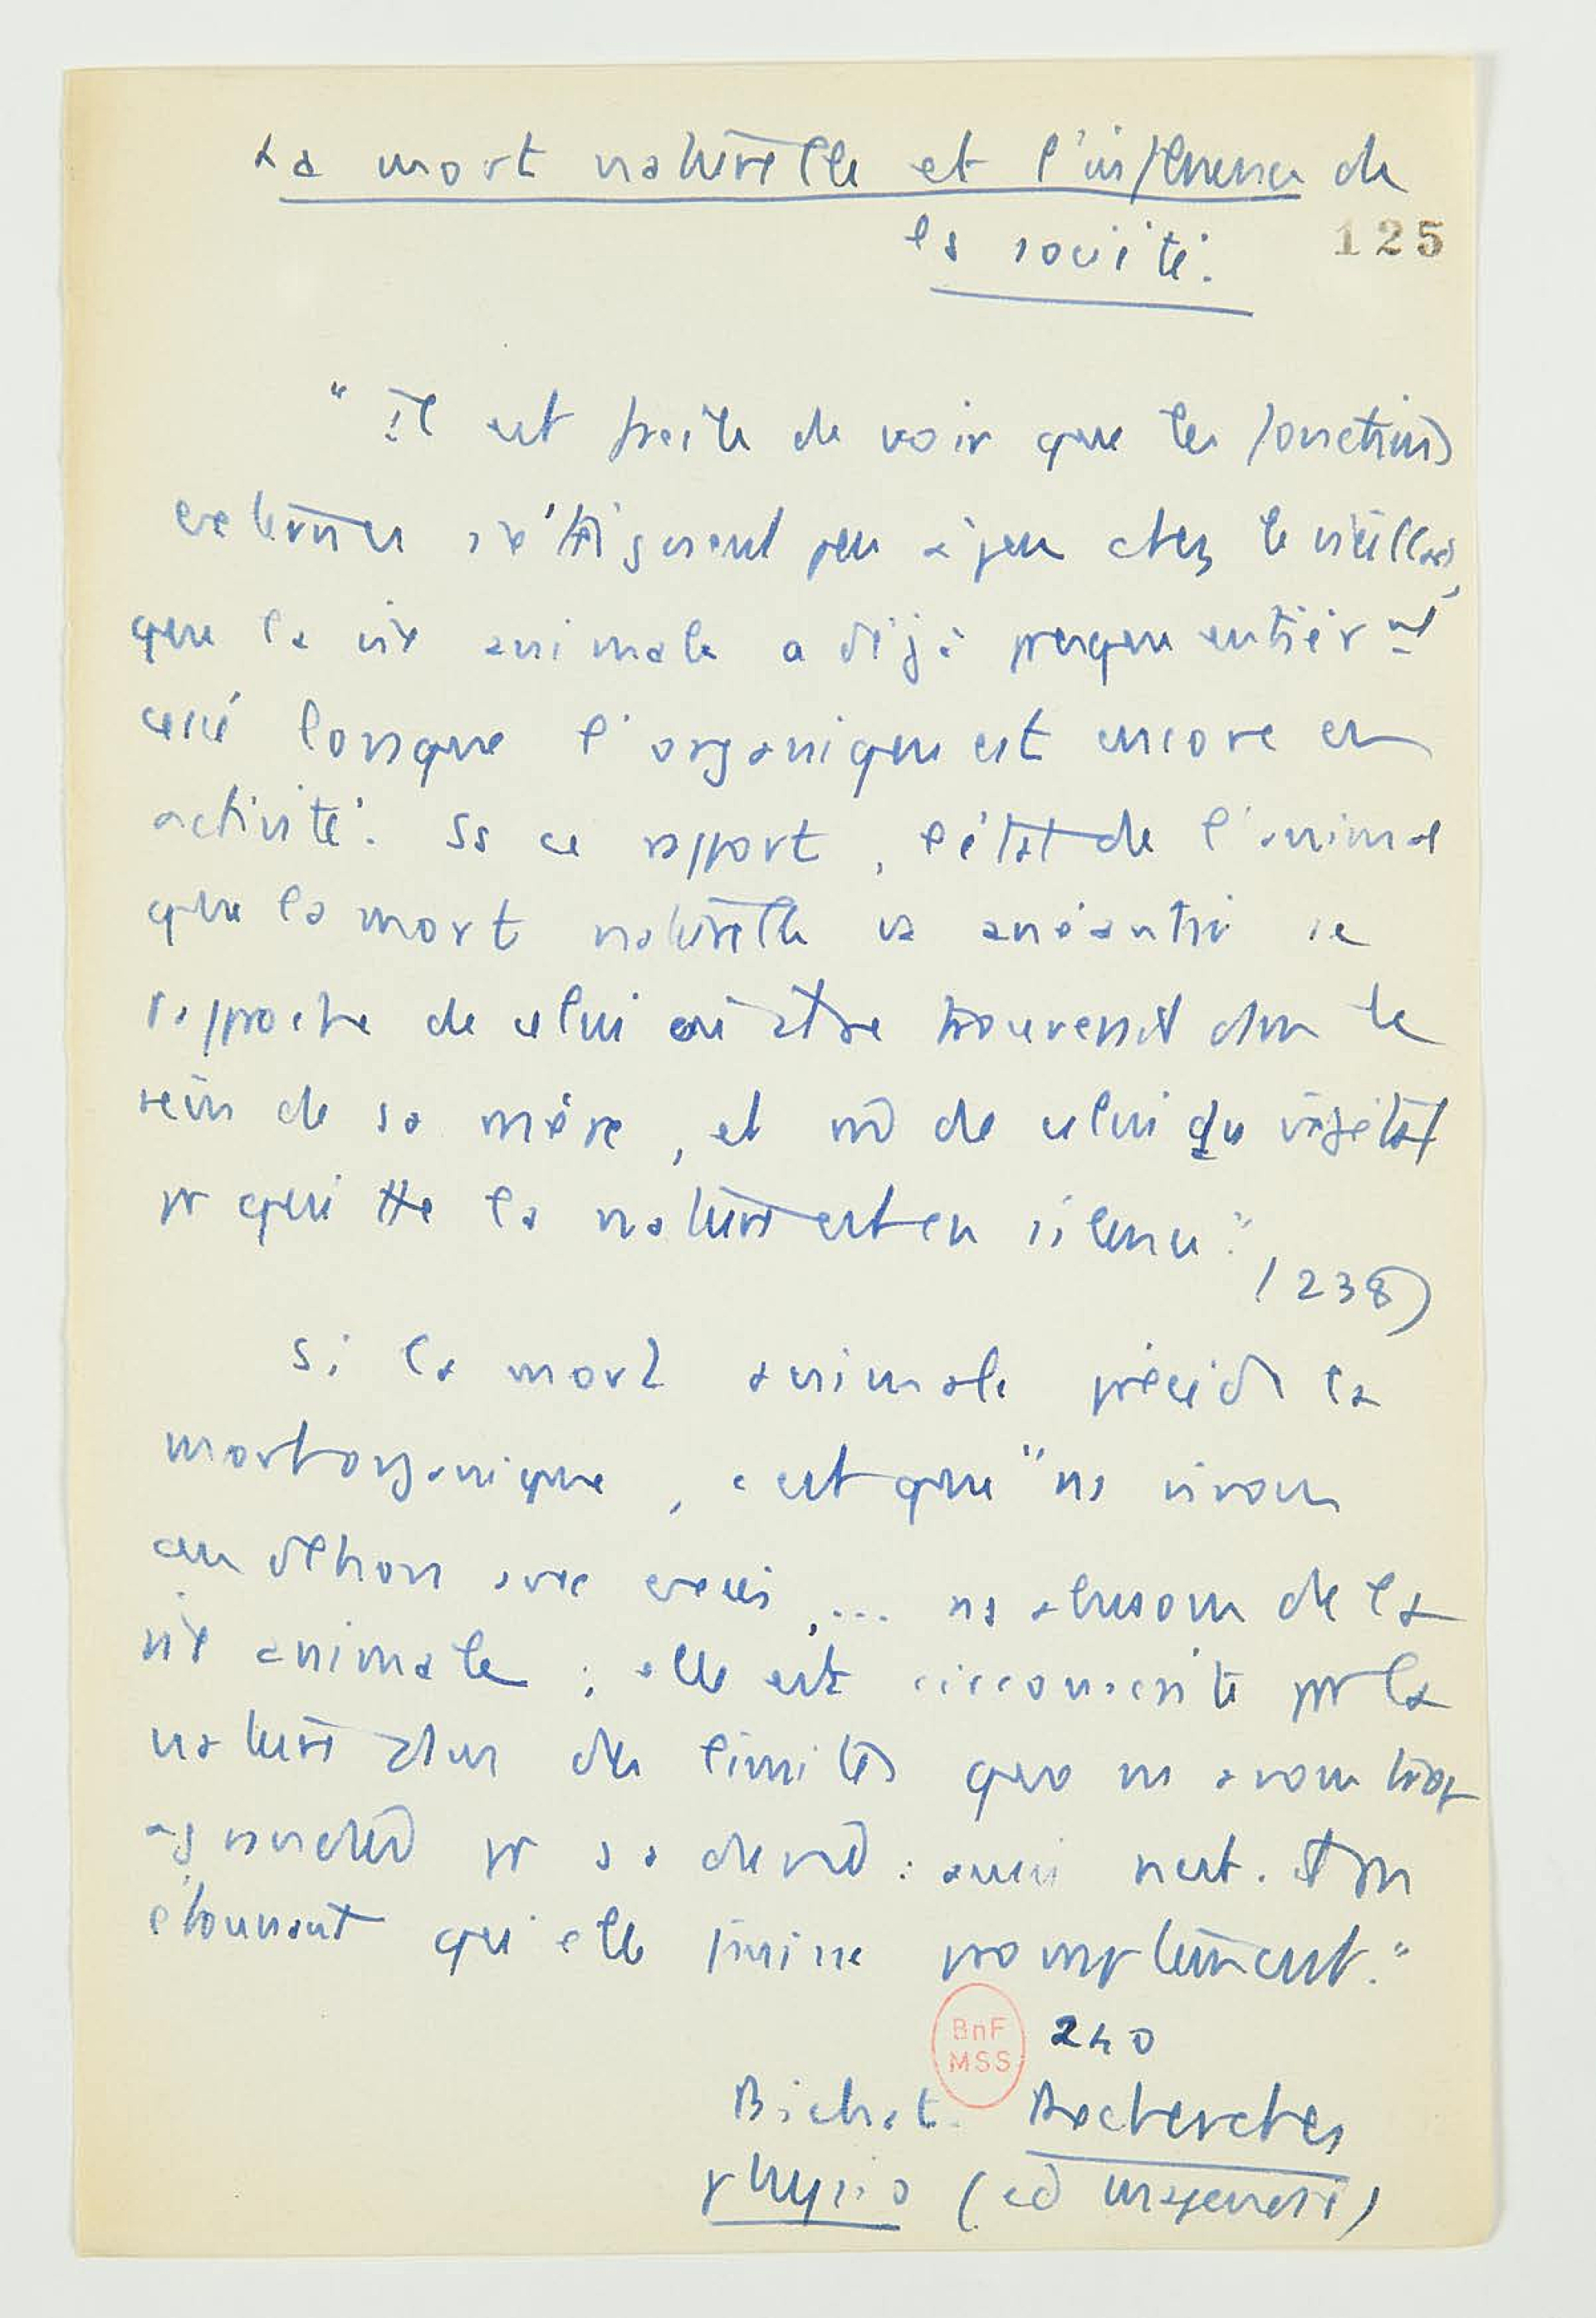 La mort naturelle et l'influence de
la société.
125
"Il est facile de voir que les fonctions
externes s'éteignent peu à peu chez le vieillard,
que la vie animale a déjà presque entièrt
cessé lorsque l'organique est encore en
activité. Ss ce rapport, l'état de l'animal
que la mort naturelle va anéantir se
rapproche de celui où il se trouvait dans le
sein de sa mère, et nō de celui du végétal
pr qui tte la nature est en silence."
(238)
Si la mort animale précède la
mort organique, c'est que "ns vivons
au dehors avec excès, ... ns abusons de la
vie animale ; elle est circonscrite par la
nature dans des limites que ns avons trop
agrandies pr sa durée : aussi n'est-il pas
étonnant qu'elle finisse promptement."
BnF
MSS
240
Bichat. Recherches
physio (ed Magendie)